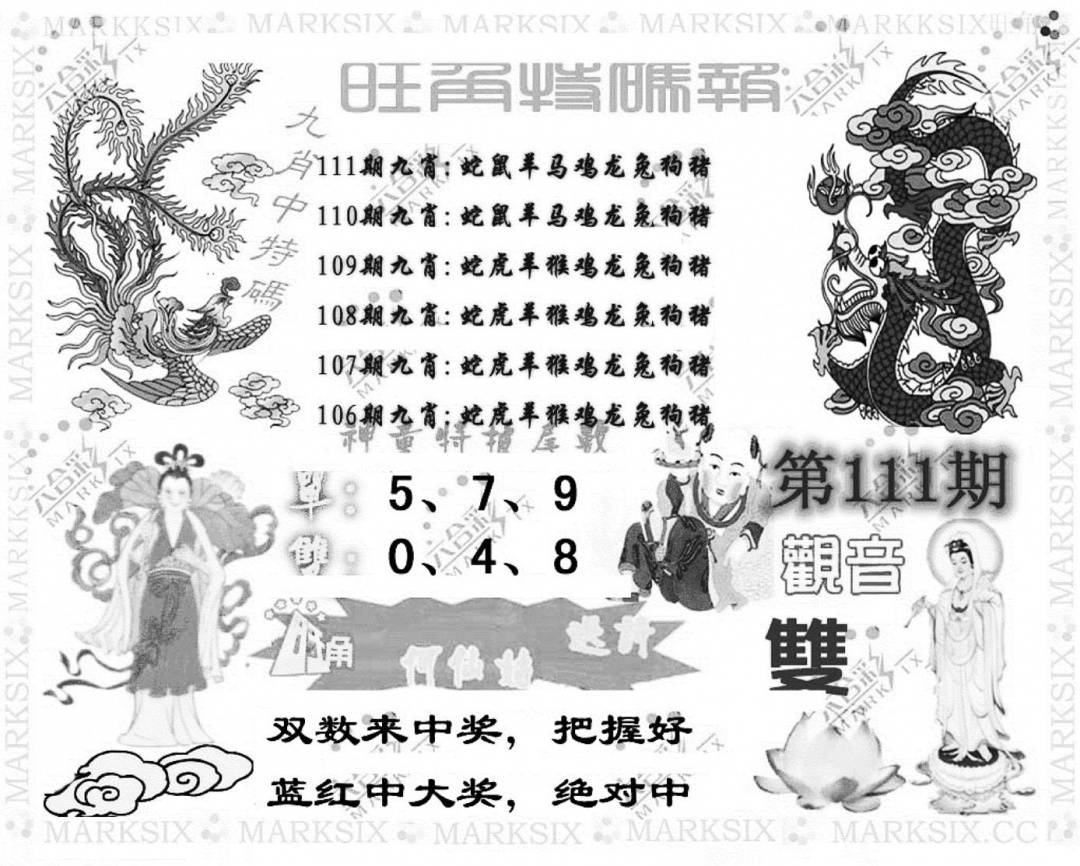 MARKSIX MARKSIX MARKSIX MARKSIX MARKKSIX
旺角特碼報
九肖中特碼
111期九肖:蛇鼠羊马鸡龙兔狗猪
110期九肖:蛇鼠羊马鸡龙兔狗猪
109期九肖:蛇虎羊猴鸡龙兔狗猪
108期九肖:蛇虎羊猴鸡龙兔狗猪
107期九肖:蛇虎羊猴鸡龙兔狗猪
106期九肖:蛇虎羊猴鸡龙兔狗猪
神童特推尾數
單:5、7、9
雙:0、4、8
第111期
觀音
雙
何仙姑
双数来中奖,把握好
蓝红中大奖,绝对中
MARKSIX MARKSIX MARKSIX MARKSIX MARKSIX.CC